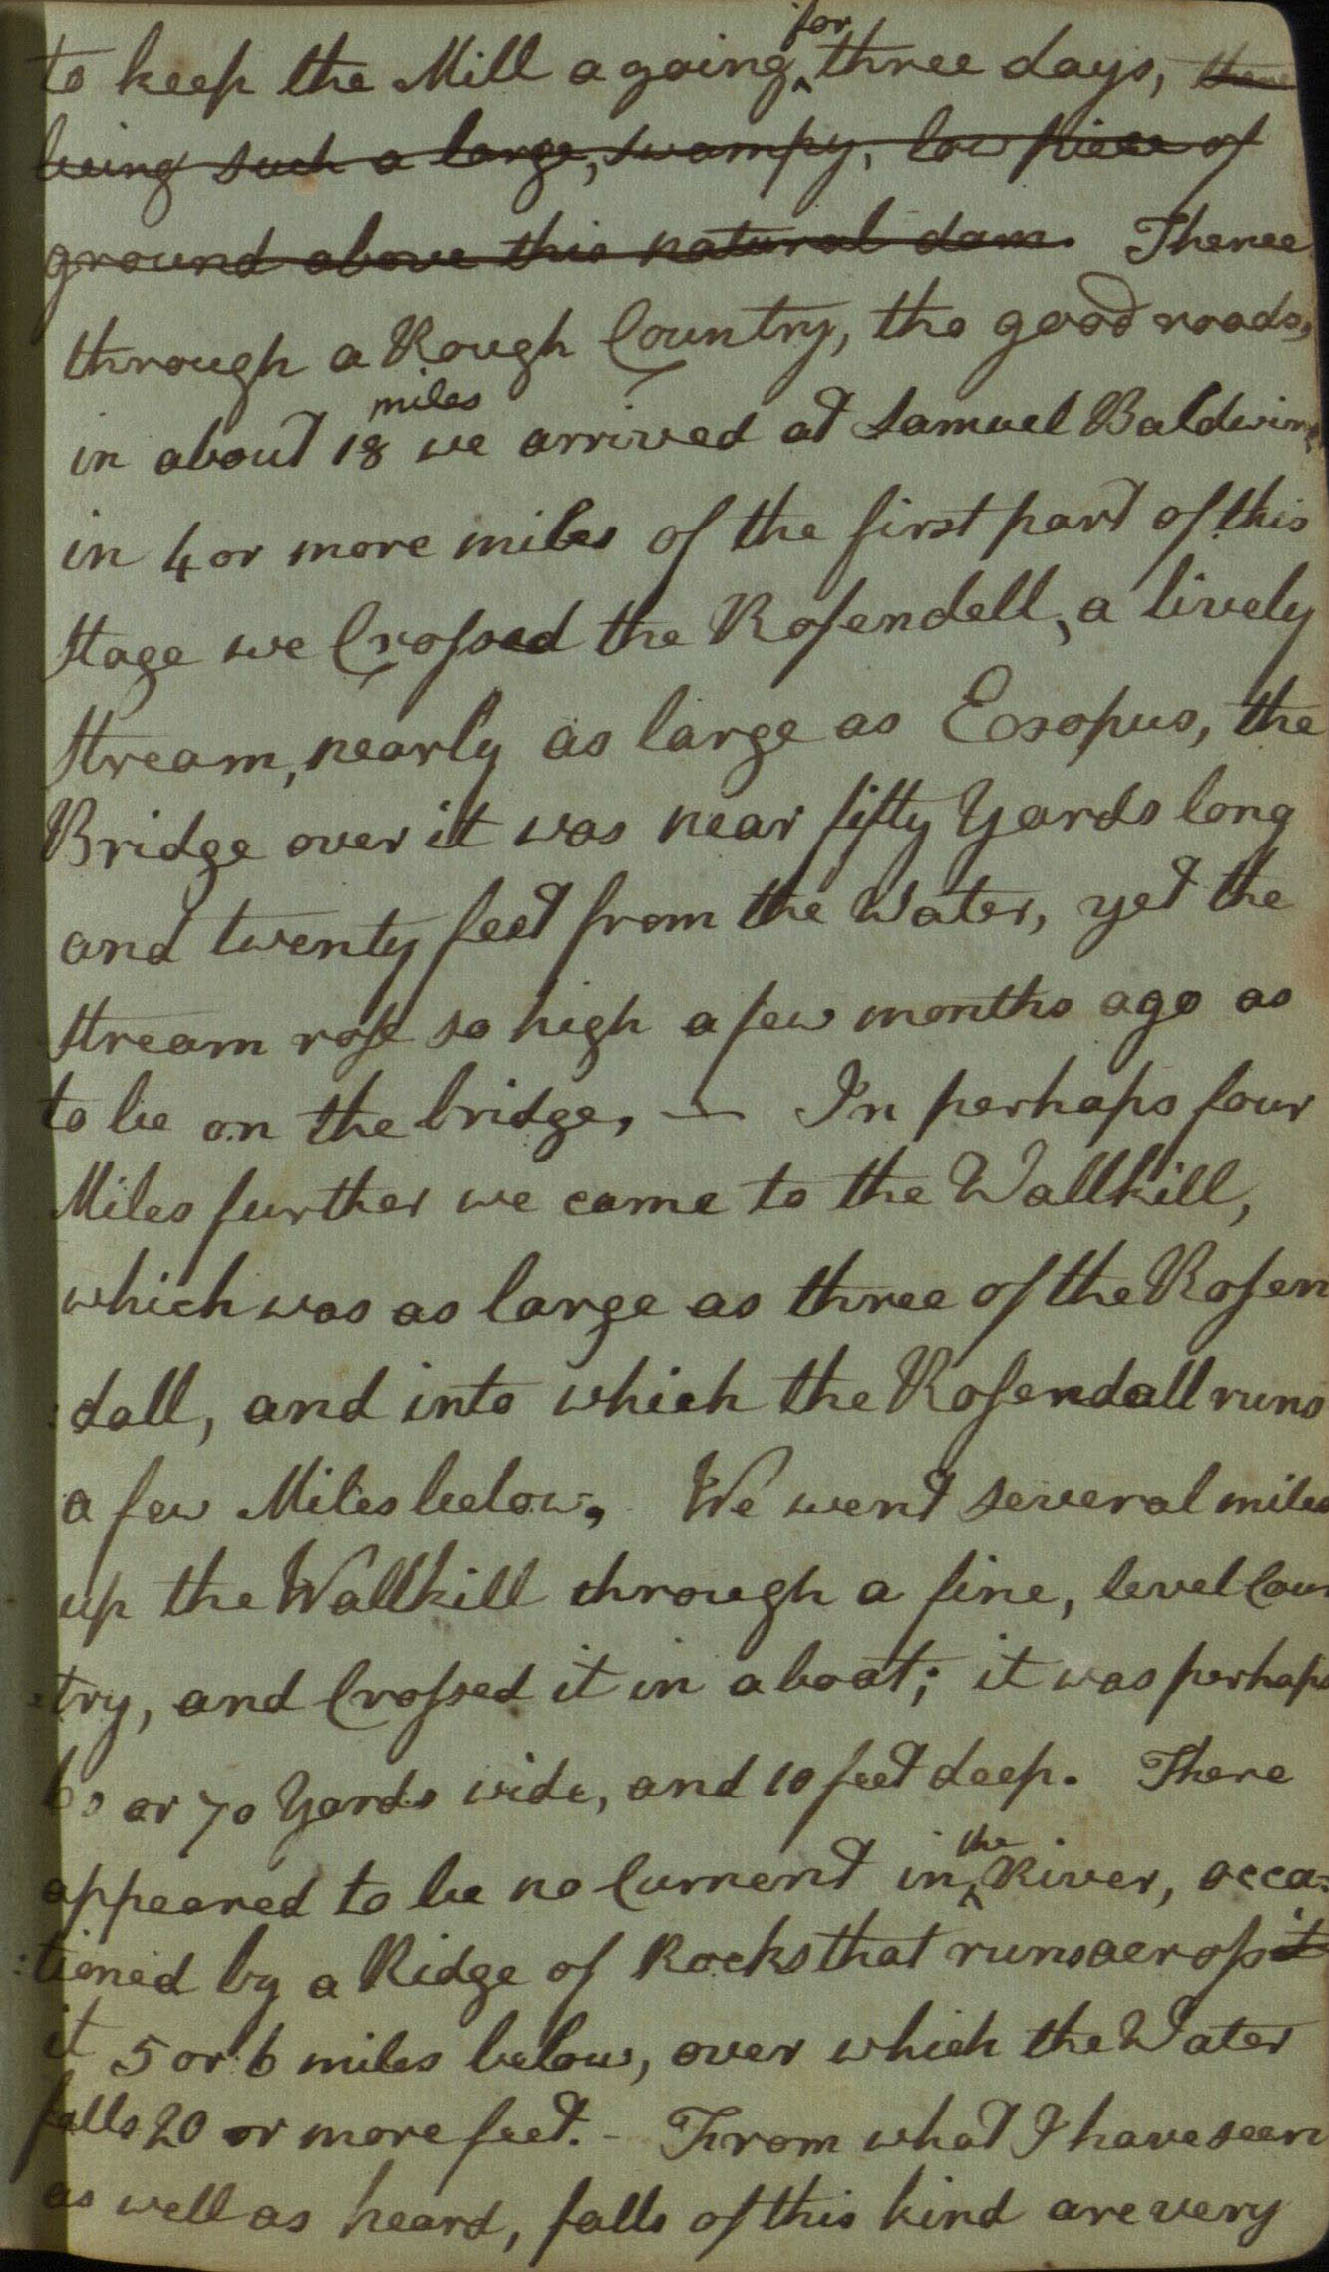 to keep the Mill a going for three days, there
being such a large, swampy, low piece of
ground above this natural dam. Thence
through a Rough Country, tho good roads,
in about 18 miles we arrived at Samuel Baldwins,
in 4 or more miles of the first part of this
Stage we Crossed the Rosendell, a lively
Stream, nearly as large as Esopus, the
Bridge over it was near fifty Yards long
and twenty feet from the Water, yet the
Stream rose so high a few months ago as
to be on the bridge, — In perhaps four
Miles further we came to the Wallkill,
which was as large as three of the Rosen
:dall, and into which the Rosendall runs
a few Miles below, We went several miles
up the Wallkill through a fine, level Coun
:try, and Crossed it in a boat; it was perhaps
60 or 70 Yards wide, and 10 feet deep. There
appeared to be no Current in the River, occa:
:tioned by a Ridge of Rocks that runs across it
it 5 or 6 miles below, over which the Water
falls 20 or more feet. - From what I have seen
as well as heard, falls of this kind are very